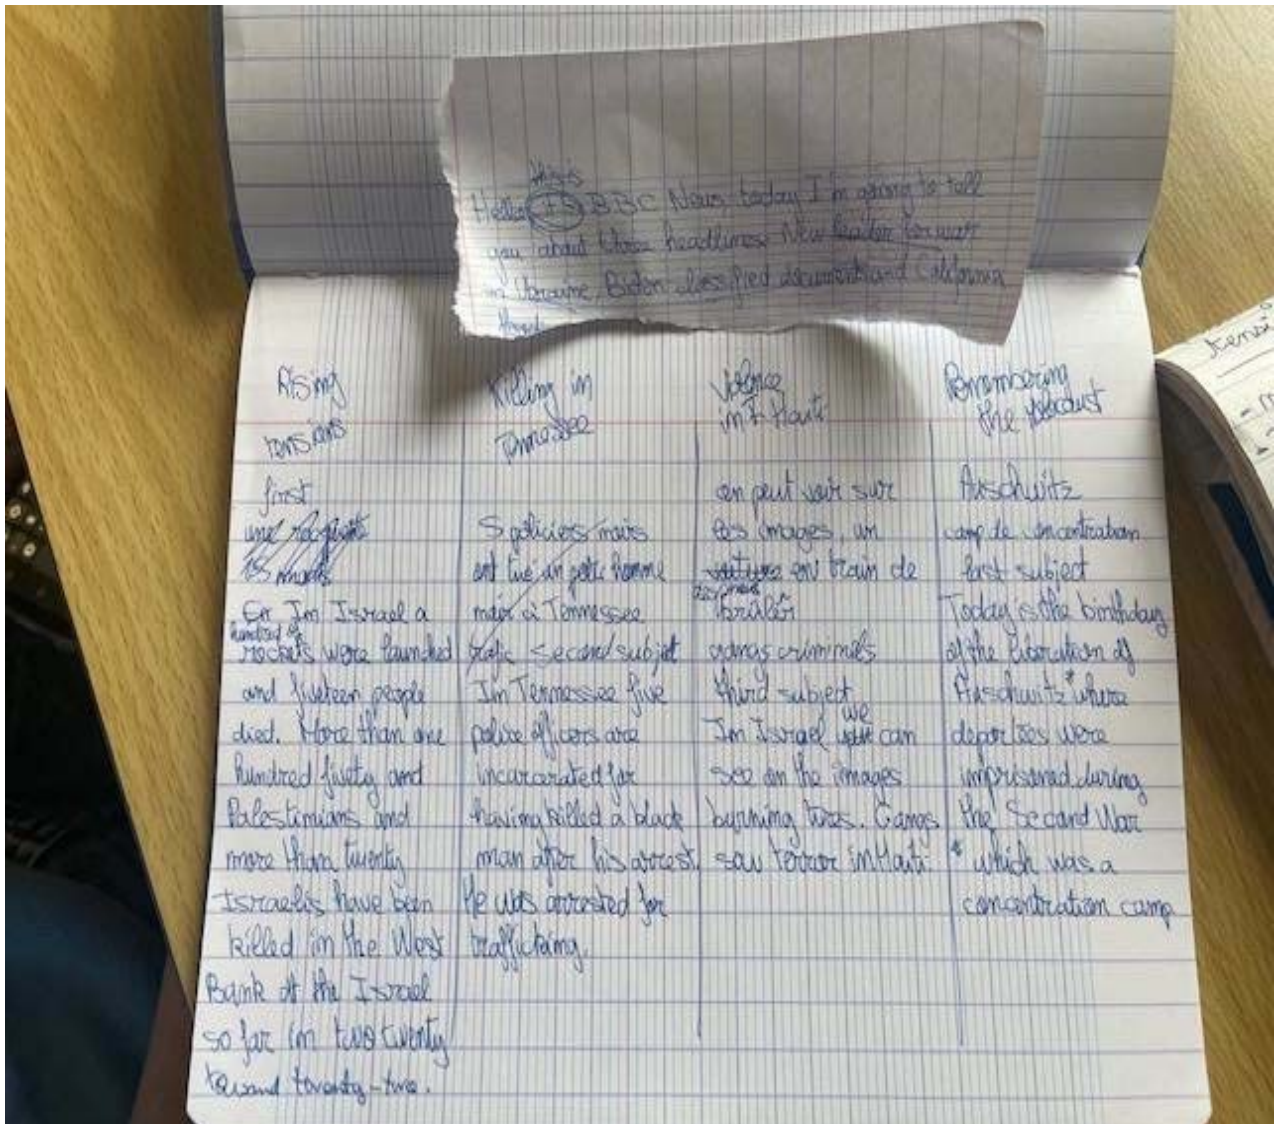 this is
Hello is BBC News, today I'm going to tell
you about three headlines New leader for war
in Ukraine, Biden classified documents and California
Rising
tensions
first
15 morts
En Im Israel a
hundred of
rockets were launched
and fiveteen people
died. More than one
hundred fivety and
Palestinians and
more than twenty
Israelis have been
killed in the West
Bank the Israel
so far in two twenty
twenty-two.
Killing in
Tennessee
5 policiers noirs
ont tué un petit homme
noir à Tennessee
trafic second subject
Im Tennessee five
police officers are
incarcerated for
having killed a black
man after his arrest.
He was arrested for
trafficking.
Violence
in Haiti
on peut voir sur
les images, un
voiture en train de
des pneus
brûler
gangs criminels
third subject
we
Im Israel can
see on the images
burning tires. Gangs
saw terror in Haiti
Remembering
the Holocaust
Auschwitz
camp de concentration
last subject
Today is the birthday
of the liberation of
Auschwitz* where
deportees were
imprisoned during
the Second War
* which was a
concentration camp
tensi